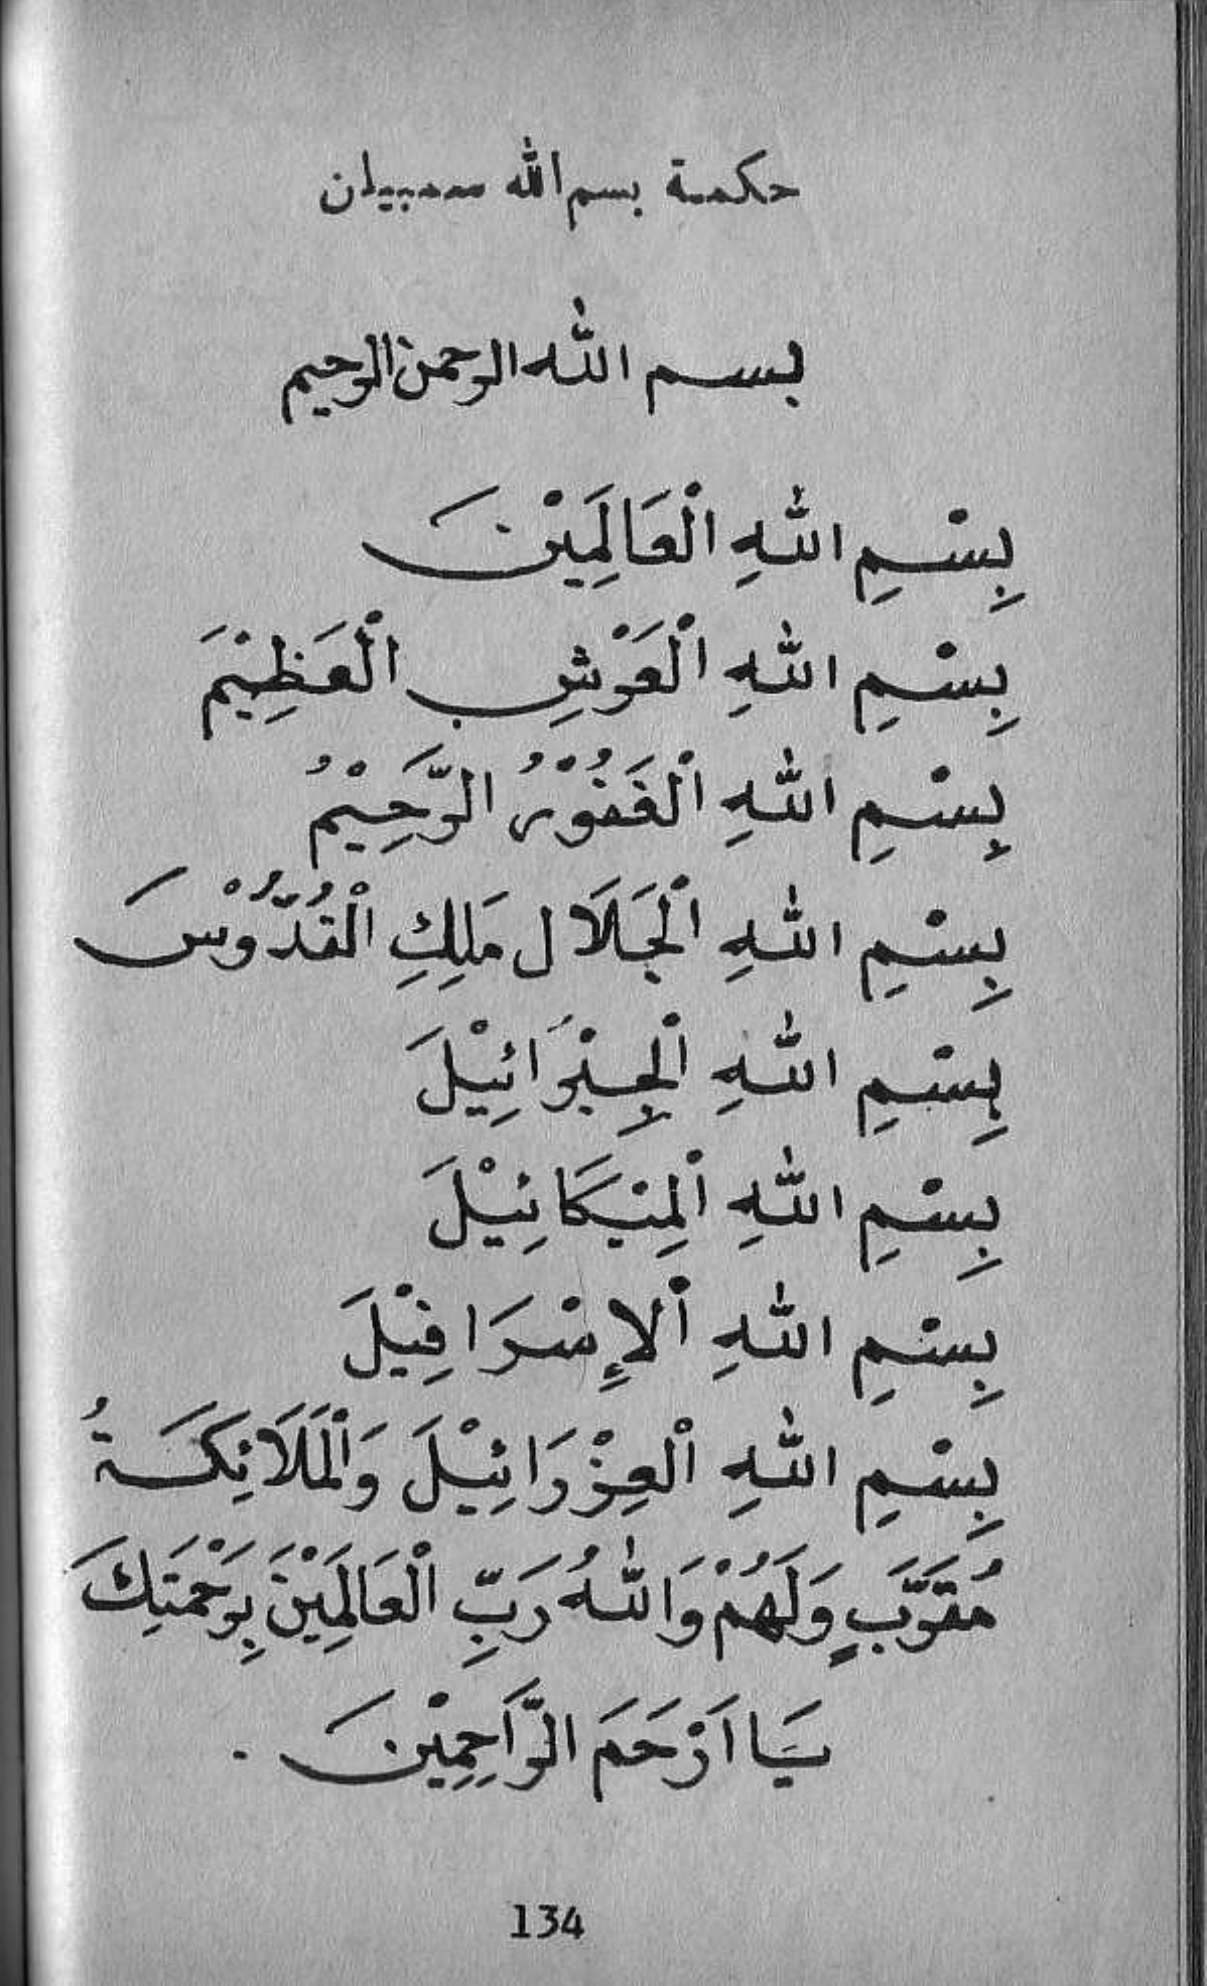 حكمة بسم الله سمبيلن
بسم الله الرحمن الرحيم
بِسْمِ اللهِ الْعَالَمِيْنَ
بِسْمِ اللهِ الْعَرْشِ الْعَظِيْمَ
بِسْمِ اللهِ الْغَفُوْرُ الرَّحِيْمُ
بِسْمِ اللهِ الْجَلَال مَلِكِ الْقُدُّوْسَ
بِسْمِ اللهِ الْجِبْرَائِيْلَ
بِسْمِ اللهِ الْمِيْكَائِيْلَ
بِسْمِ اللهِ الْإِسْرَافِيْلَ
بِسْمِ اللهِ الْعِزْرَائِيْلَ وَالْمَلَائِكَةُ
مُقَرَّبٍ وَلَهُمْ وَاللهُ رَبِّ الْعَالَمِيْنَ بِرَحْمَتِكَ
يَا اَرْحَمَ الرَّاحِمِيْنَ .
134